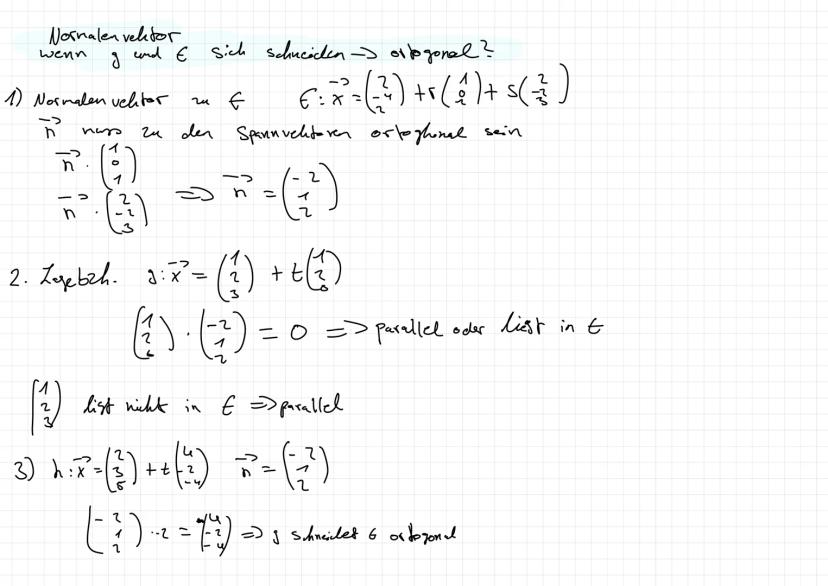 Normalenvektor
wenn g und E sich schneiden -> ortogonal?
1) Normalenvektor zu E E: x⃗ = (2 -4 2) + r (1 0 1) + s (2 -2 3)
n⃗ muss zu den Spannvektoren ortoghonal sein
n⃗ · (1 0 1)
n⃗ · (2 -2 3) => n⃗ = (-2 1 2)
2. Lagebzh. g: x⃗ = (1 2 3) + t (1 2 0)
(1 2 0) · (-2 1 2) = 0 => parallel oder liegt in E
(1 2 3) liegt nicht in E => parallel
3) h: x⃗ = (2 3 5) + t (4 -2 -4) n⃗ = (-2 1 2)
(-2 1 2) · -2 = (4 -2 -4) => g schneidet E ortogonal